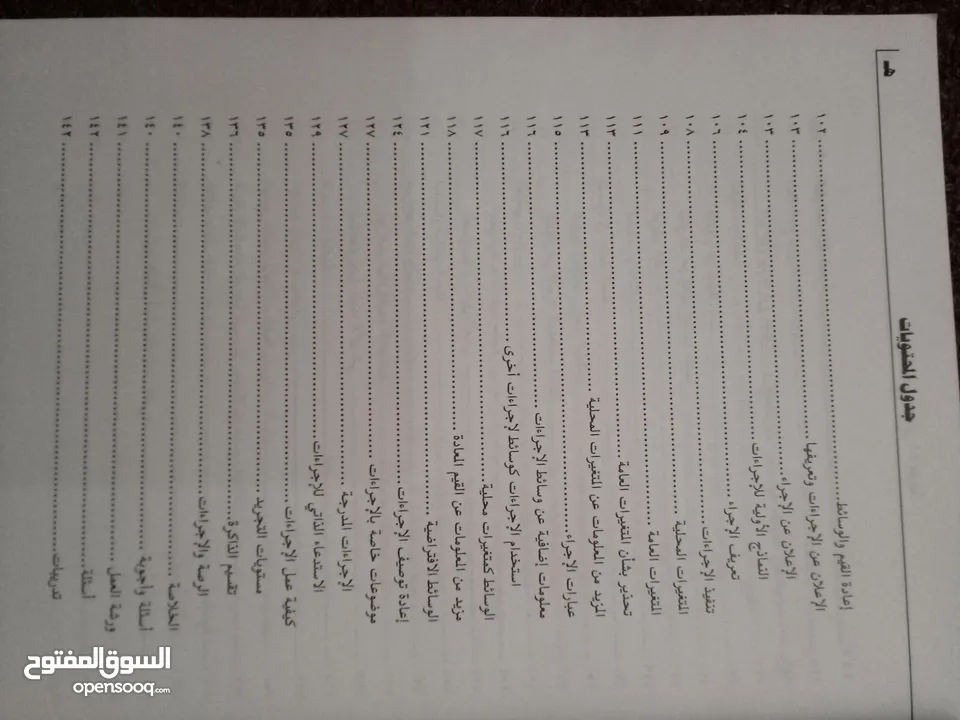 هـ
جدول المحتويات
إعادة القيم والوسائط ........ ١٠٢
الإعلان عن الإجراءات وتعريفها ........ ١٠٣
الإعلان عن الإجراء ........ ١٠٣
النماذج الأولية للإجراءات ........ ١٠٤
تعريف الإجراء ........ ١٠٦
تنفيذ الإجراءات ........ ١٠٨
المتغيرات المحلية ........ ١٠٩
المتغيرات العامة ........ ١١١
تحذير بشأن المتغيرات العامة ........ ١١٣
المزيد من المعلومات عن المتغيرات المحلية ........ ١١٣
عبارات الإجراء ........ ١١٥
معلومات إضافية عن وسائط الإجراءات ........ ١١٦
استخدام الإجراءات كوسائط لإجراءات أخرى ........ ١١٦
الوسائط كمتغيرات محلية ........ ١١٧
مزيد من المعلومات عن القيم المعادة ........ ١١٨
الوسائط الافتراضية ........ ١٢١
إعادة توصيف الإجراءات ........ ١٢٤
موضوعات خاصة بالإجراءات ........ ١٢٧
الإجراءات المدرجة ........ ١٢٧
الاستدعاء الذاتي للإجراءات ........ ١٢٩
كيفية عمل الإجراءات ........ ١٣٥
مستويات التجريد ........ ١٣٥
تقسيم الذاكرة ........ ١٣٦
الرصة والإجراءات ........ ١٣٨
الخلاصة ........ ١٤٠
أسئلة وأجوبة ........ ١٤٠
ورشة العمل ........ ١٤١
أسئلة ........ ١٤٢
تدريبات ........ ١٤٢
السوق المفتوح
opensooq.com